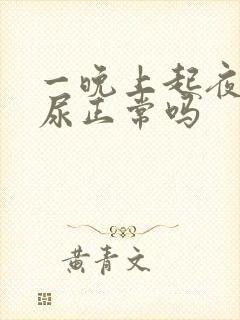 一晚上起夜
尿正常吗
黄青文